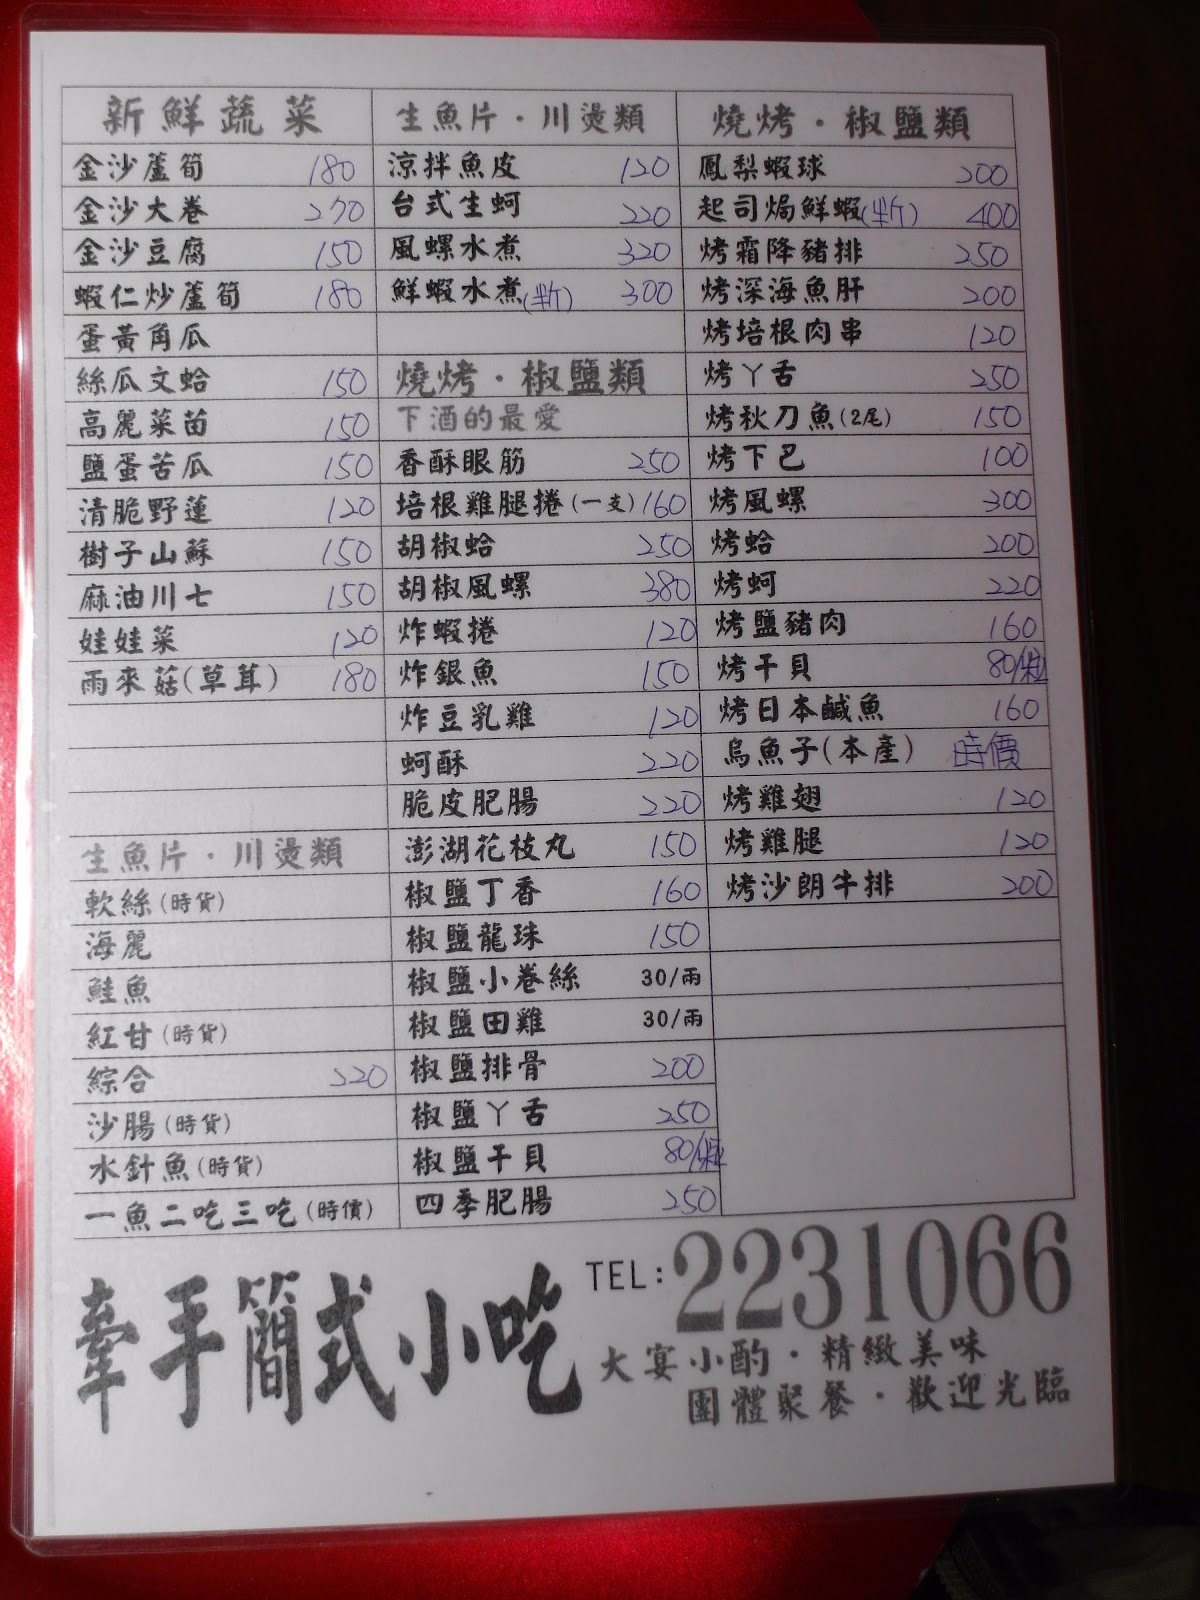 新鮮蔬菜
金沙蘆筍 180
金沙大卷 270
金沙豆腐 150
蝦仁炒蘆筍 180
蛋黃角瓜
絲瓜文蛤 150
高麗菜苗 150
鹽蛋苦瓜 150
清脆野蓮 120
樹子山蘇 150
麻油川七 150
娃娃菜 120
雨來菇(草茸) 180
生魚片・川燙類
軟絲(時貨)
海麗
鮭魚
紅甘(時貨)
綜合 220
沙腸(時貨)
水針魚(時貨)
一魚二吃三吃(時價)
生魚片・川燙類
涼拌魚皮 120
台式生蚵 220
風螺水煮 320
鮮蝦水煮(半斤) 300
燒烤・椒鹽類
下酒的最愛
香酥眼筋 250
培根雞腿捲(一支) 160
胡椒蛤 250
胡椒風螺 380
炸蝦捲 120
炸銀魚 150
炸豆乳雞 120
蚵酥 220
脆皮肥腸 220
澎湖花枝丸 150
椒鹽丁香 160
椒鹽龍珠 150
椒鹽小卷絲 30/兩
椒鹽田雞 30/兩
椒鹽排骨 200
椒鹽丫舌 250
椒鹽干貝 80/粒
四季肥腸 250
燒烤・椒鹽類
鳳梨蝦球 200
起司焗鮮蝦(半斤) 400
烤霜降豬排 250
烤深海魚肝 200
烤培根肉串 120
烤丫舌 250
烤秋刀魚(2尾) 150
烤下巴 100
烤風螺 300
烤蛤 200
烤蚵 220
烤鹽豬肉 160
烤干貝 80/粒
烤日本鹹魚 160
烏魚子(本產) 時價
烤雞翅 120
烤雞腿 120
烤沙朗牛排 200
牽手簡式小吃
TEL:2231066
大宴小酌・精緻美味
團體聚餐・歡迎光臨